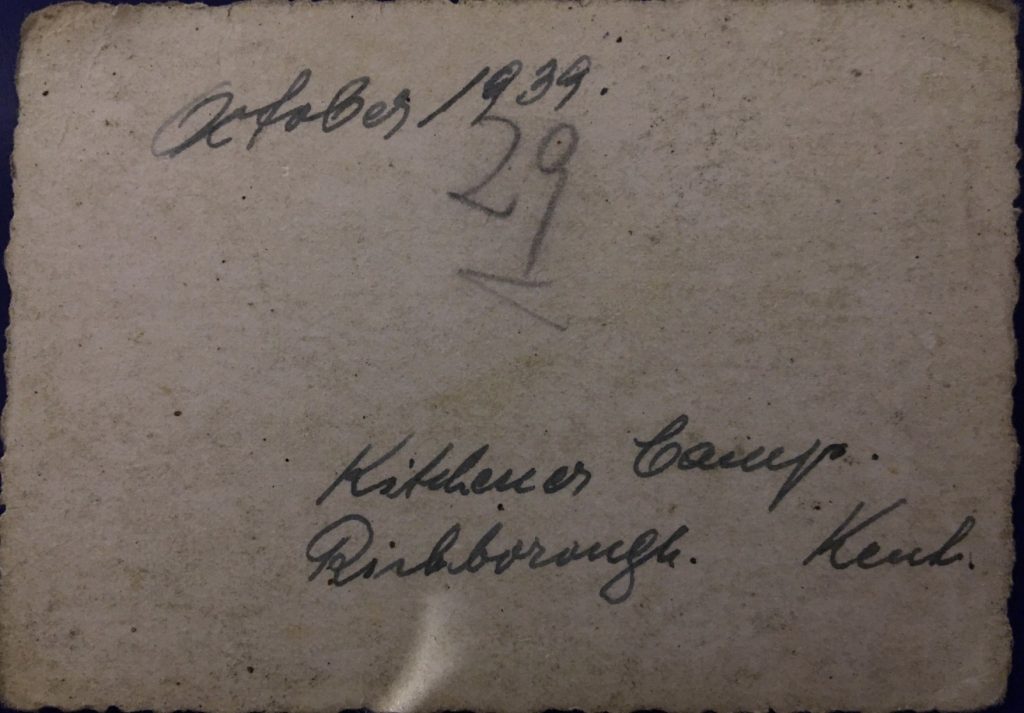 October 1939.
29
Kitchener Camp.
Richborough. Kent.